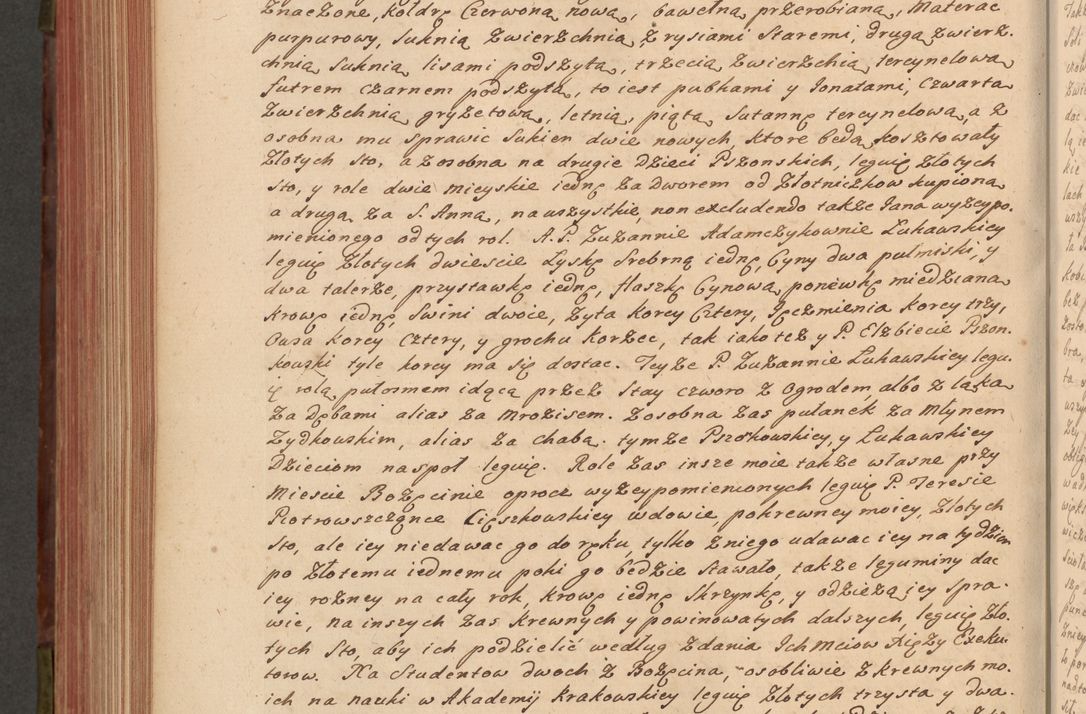 znaczone, kołdrę Czerwoną nową, bawełną przerobianą, Materac
purpurowy, suknią zwierzchnią z rysiami staremi, drugą zwierz-
chnią suknią lisami podszytą, trzecią zwierzchią tercynelową
futrem czarnem podszytą, to iest pubkami y Jonatami, czwartą
zwierzchnią gryzetową, letnią, piątą sutannę tercynelową, a z
osobna mu sprawic sukien dwie nowych, ktore będą kosztowały
złotych sto, a zosobna na drugie Dzieci Pszonskich, leguię złotych
sto, y role dwie mieyskie iednę za Dworem od Złotniczkow kupioną
a drugą za S. Anną, na wszystkie, non excludendo także Jana wyzeypo-
mienionego od tych rol. A. P. Zuzannie Adamczykownie Lukawskiey
leguię złotych dwiescie Łyskę srebrną iednę, Cyny dwa pulmiski, y
dwa talerze, przystawkę iednę, flaszkę Cynową, poniewkę miedzianą
krowę iednę, swini dwoie, zyta korcy Cztery, Jęczmienia korcy trzy,
Owsa korcy cztery, y grochu korzec, tak iako też y P. Elzbiecie Pszon-
kowski tyle korcy ma się dostac. Teyże P. Zuzannie Lukawskiey legu-
ię rolą pułosmem idącą przez stay czworo z ogrodem, albo z łąką
za Dębami alias za Mrozisem. Zosobna zas pulanek za Młynem
Zydkowskim, alias za chabą. tymze Pszokowskiey, y Lukawskiey
Dzieciom naspoł leguię. Role zas insze moie także własne przy
Miescie Bozęcinie oprocz wyzeypomienionych leguię P. Teresie
Piotrowszczęnce Cięszkowskiey wdowie pokrewney moiey, złotych
sto, ale iey niedawac go do ręku, tylko zniego udawac iey na tydzien
po złotemu iednemu poki go będzie stawało, także leguminy dac
iey rożney na cały rok, krowę iednę skrzynkę, y odzieżą iey spra-
wic, na inszych zas krewnych y powinowatych dalszych, leguię zło-
tych sto, aby ich podzielić według zdania Ich Mciow Xięzy Exeku-
torow. Na studentow dwoch z Bozęcina, osobliwie z krewnych mo-
ich na nauki w Akademij Krakowskiey leguię złotych trzysta y dwa-